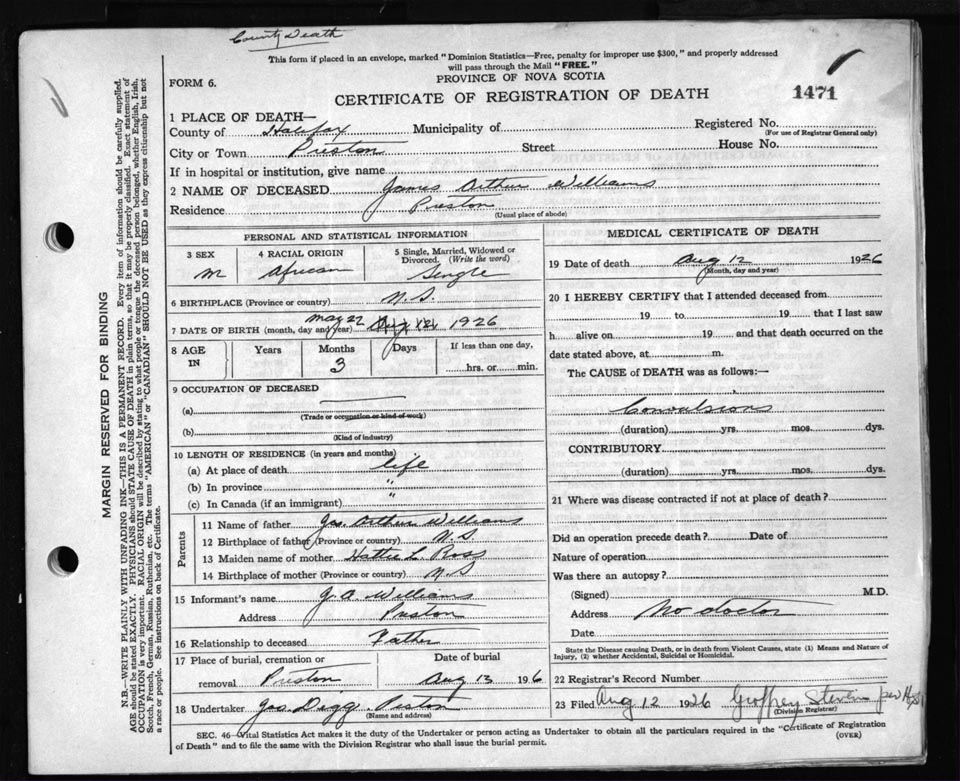 County Death
This form if placed in an envelope, marked "Dominion Statistics—Free, penalty for improper use $300," and properly addressed
will pass through the Mail "FREE."
PROVINCE OF NOVA SCOTIA
FORM 6.
CERTIFICATE OF REGISTRATION OF DEATH
1471
1 PLACE OF DEATH—
County of Halifax Municipality of Registered No.
(For use of Registrar General only)
City or Town Preston Street House No.
If in hospital or institution, give name
2 NAME OF DECEASED James Arthur Williams
Residence Preston
(Usual place of abode)
PERSONAL AND STATISTICAL INFORMATION
3 SEX
M
4 RACIAL ORIGIN
African
5 Single, Married, Widowed or
Divorced. (Write the word)
Single
6 BIRTHPLACE (Province or country) N.S.
7 DATE OF BIRTH (month, day and year) May 22 1926
8 AGE
IN
Years
Months
3
Days
If less than one day,
hrs. or min.
9 OCCUPATION OF DECEASED
(a)
(Trade or occupation or kind of work)
(b)
(Kind of industry)
10 LENGTH OF RESIDENCE (in years and months)
(a) At place of death life
(b) In province "
(c) In Canada (if an immigrant) "
Parents
11 Name of father Jas. Arthur Williams
12 Birthplace of father (Province or country) N.S.
13 Maiden name of mother Hattie L Ross
14 Birthplace of mother (Province or country) N S
15 Informant's name J. A. Williams
Address Preston
16 Relationship to deceased Father
17 Place of burial, cremation or
removal Preston
Date of burial
Aug 13 1926
18 Undertaker Jas. Digg Preston
(Name and address)
MEDICAL CERTIFICATE OF DEATH
19 Date of death Aug 12 1926
(Month, day and year)
20 I HEREBY CERTIFY that I attended deceased from
19 to 19 that I last saw
h alive on 19 and that death occurred on the
date stated above, at m.
The CAUSE of DEATH was as follows:—
Convulsions
(duration) yrs. mos. dys.
CONTRIBUTORY
(duration) yrs. mos. dys.
21 Where was disease contracted if not at place of death?
Did an operation precede death? Date of
Nature of operation
Was there an autopsy?
(Signed) M.D.
Address No doctor
Date
State the Disease causing Death, or in death from Violent Causes, state (1) Means and Nature of
Injury, (2) whether Accidental, Suicidal or Homicidal.
22 Registrar's Record Number
23 Filed Aug 12 1926 Geoffrey Stevens per
(Division Registrar)
SEC. 46—Vital Statistics Act makes it the duty of the Undertaker or person acting as Undertaker to obtain all the particulars required in the "Certificate of Registration
of Death" and to file the same with the Division Registrar who shall issue the burial permit.
(OVER)
MARGIN RESERVED FOR BINDING
N.B.—WRITE PLAINLY WITH UNFADING INK—THIS IS A PERMANENT RECORD. Every item of information should be carefully supplied.
AGE should be stated EXACTLY. PHYSICIANS should STATE CAUSE OF DEATH in plain terms, so that it may be properly classified. Exact statement of
OCCUPATION is very important. RACIAL ORIGIN will be described by stating to what people or tongue the deceased person belonged, whether English, Irish,
Scotch, French, German, Russian, Ruthenian, etc. The terms "AMERICAN" or "CANADIAN" SHOULD NOT BE USED as they express citizenship but not
a race or people. See instructions on back of Certificate.